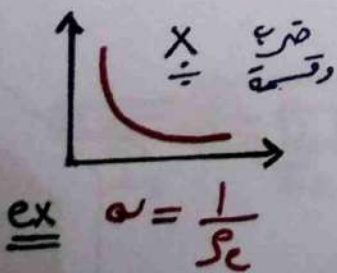 ×
÷
ضرب
وقسمة
ex σ = 1/ρe